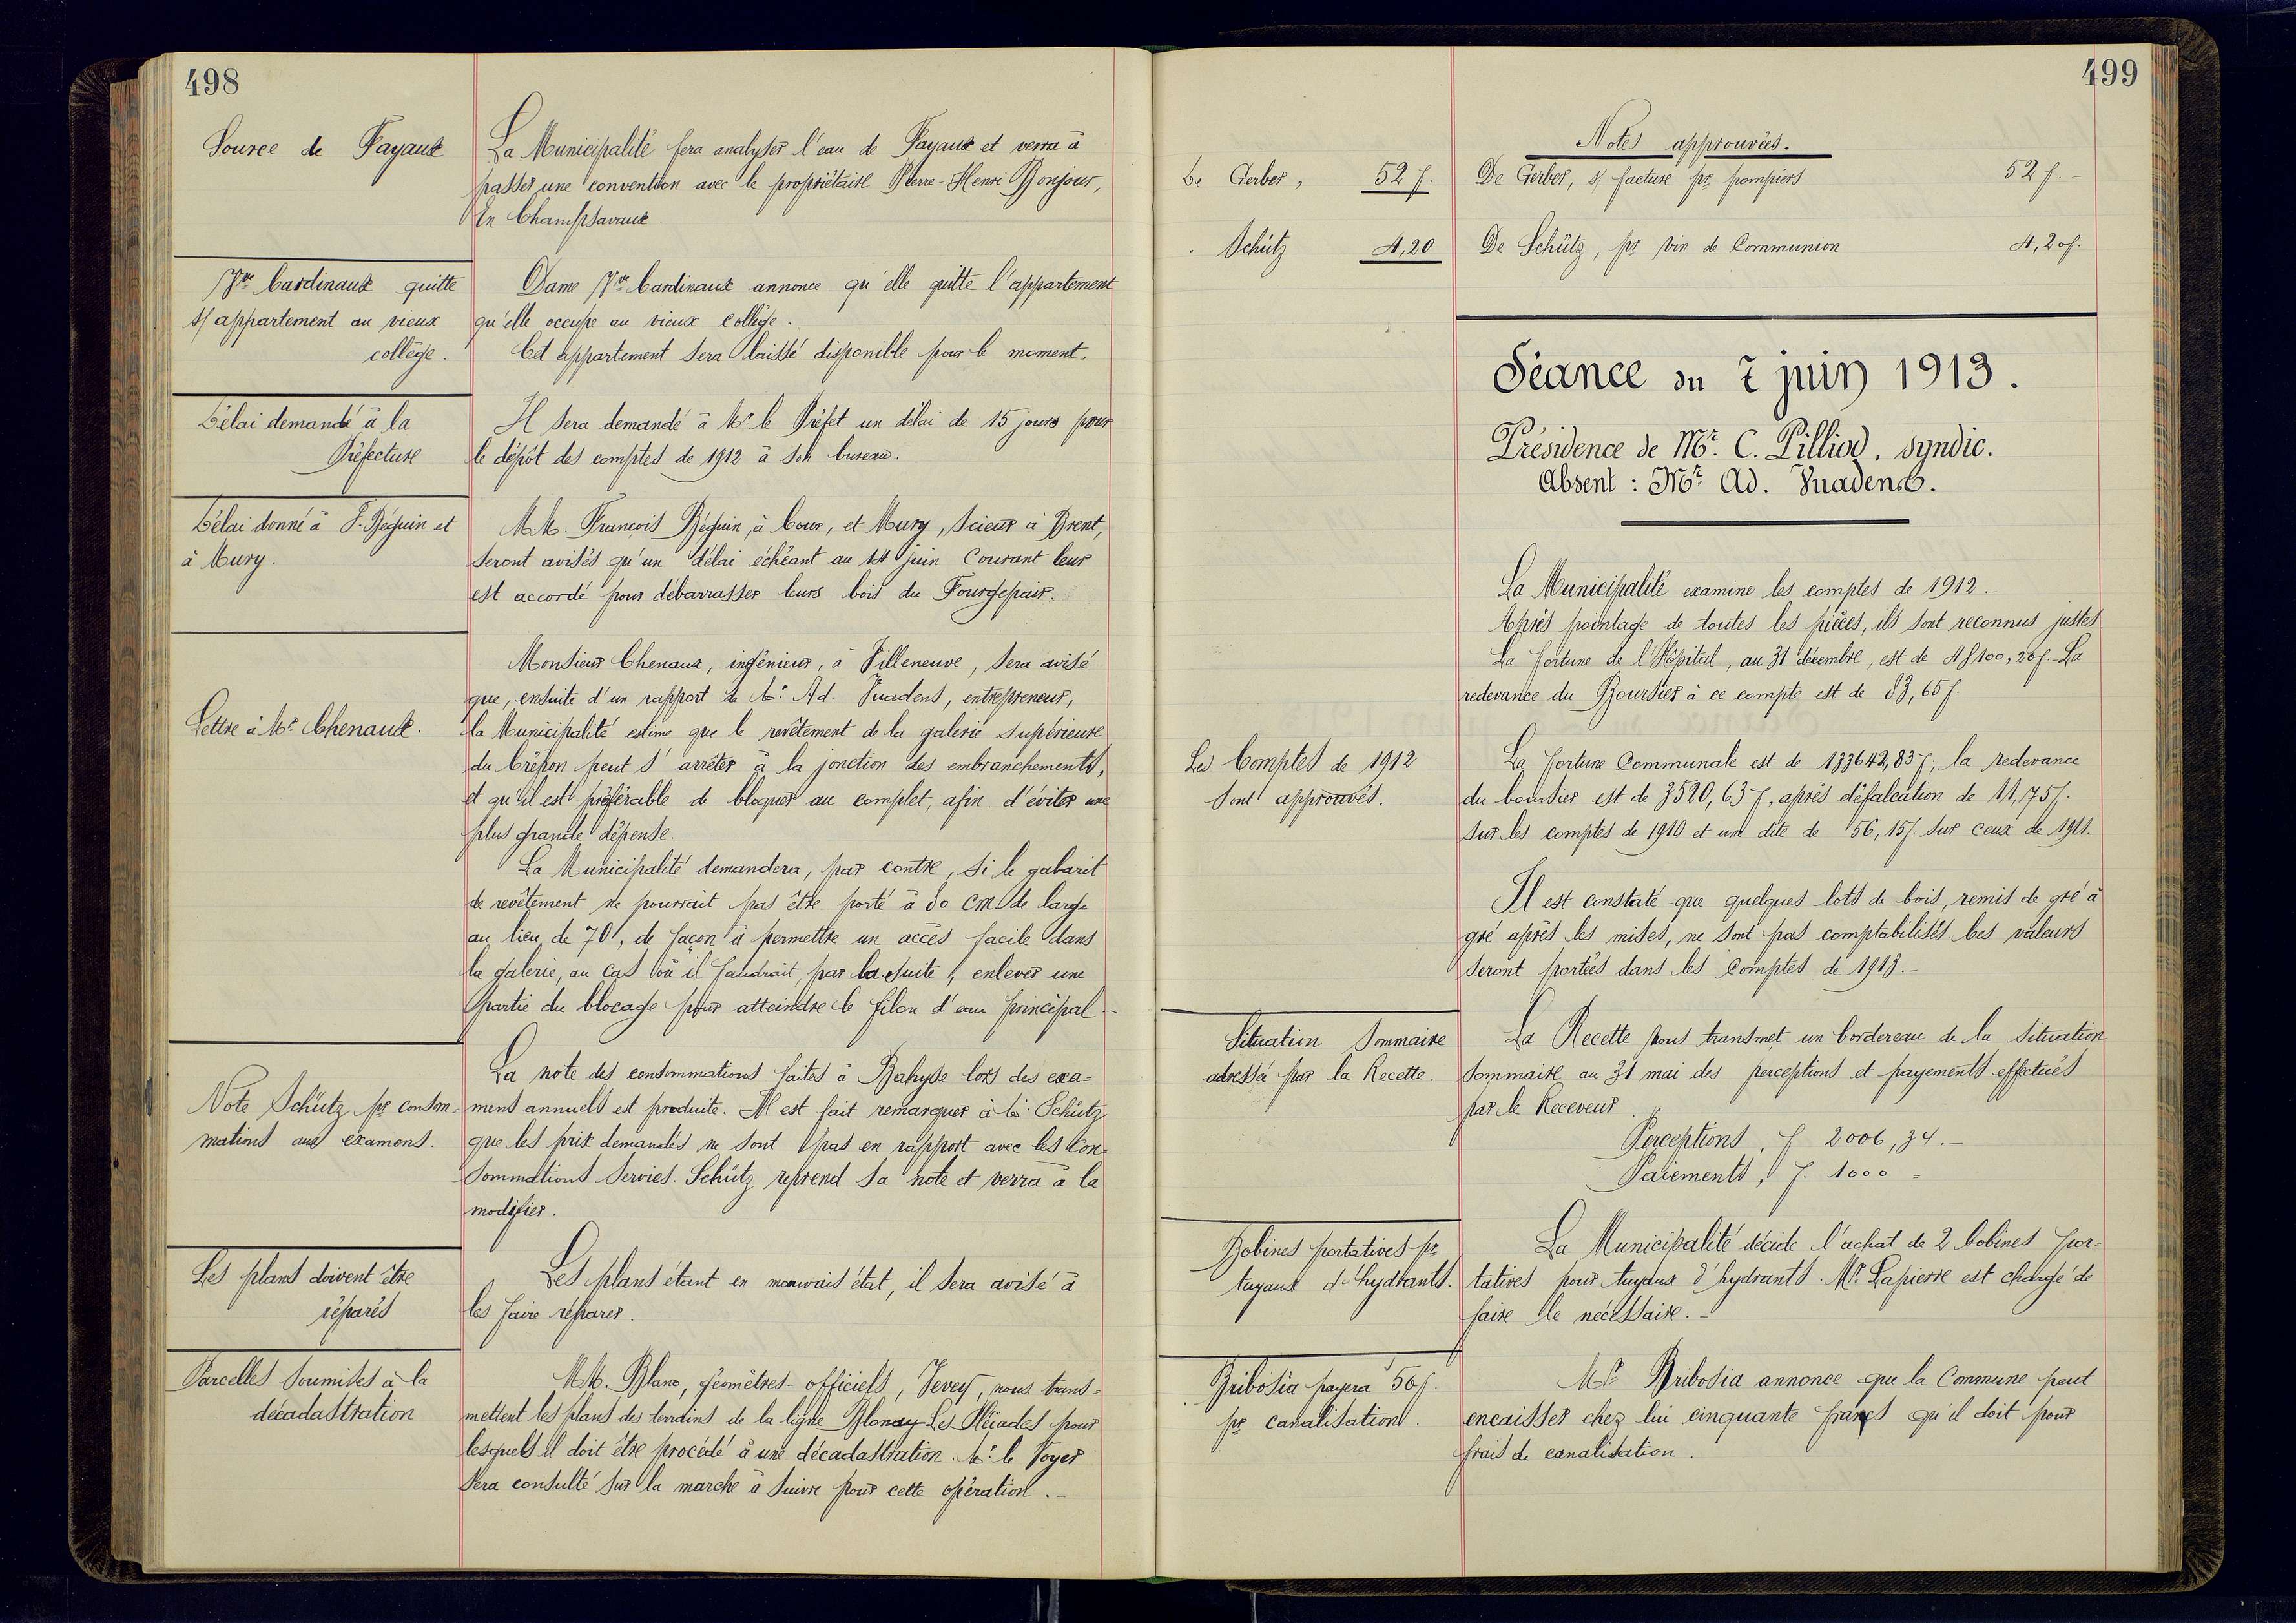 498
Source de Fayaux
La Municipalité fera analyser l'eau de Fayaux et verra à
passer une convention avec le propriétaire Pierre-Henri Bonjour,
En Champsavaux
Vve Cardinaux quitte
s/ appartement au vieux
collège.
Dame Vve Cardinaux annonce qu'elle quitte l'appartement
qu'elle occupe au vieux collège.
Cet appartement sera laissé disponible pour le moment.
Délai demandé à la
Préfecture
Il sera demandé à Mr. le Préfet un délai de 15 jours pour
le dépôt des comptes de 1912 à son bureau.
Délai donné à F. Béguin et
à Mury.
M.M. François Béguin, à Cour, et Mury, scieur à Brent,
seront avisés qu'un délai échéant au 14 juin courant leur
est accordé pour débarrasser leurs bois du
Lettre à Mr. Chenaux.
Monsieur Chenaux, ingénieur, à Villeneuve, sera avisé
que, ensuite d'un rapport de Mr. Ad. Vuadens, entrepreneur,
la Municipalité estime que le revêtement de la galerie supérieure
du peut s'arrêter à la jonction des embranchements,
et qu'il est préférable de bloquer au complet, afin d'éviter une
plus grande dépense.
La Municipalité demandera, par contre, si le gabarit
de revêtement ne pourrait pas être porté à 80 cm de large
au lieu de 70, de façon à permettre un accès facile dans
la galerie, au cas où il faudrait, par la suite, enlever une
partie du blocage pour atteindre le filon d'eau principal.-
Note Schütz pr consm-
mations aux examens.
La note des consommations faites à Bahyse lors des exa=
mens annuels est produite. Il est fait remarquer à Mr. Schütz
que les prix demandés ne sont pas en rapport avec les con=
sommations servies. Schütz reprend sa note et verra à la
modifier.
Les plans doivent être
réparés
Les plans étant en mauvais état, il sera avisé à
les faire réparer.
Parcelles soumises à la
décadastration
MM. Blanc, géomètres-officiels, Vevey, nous trans=
mettent les plans des terrains de la ligne Blonay-Les Pléiades pour
lesquels il doit être procédé à une décadastration. Mr. le Voyer
sera consulté sur la marche à suivre pour cette opération.-
499
Notes approuvées.
De Gerber, 52 f.
De Gerber, s/ facture pr pompiers 52 f.-
Schütz 4,20
De Schütz, pr vin de Communion 4,20 f.
Séance du 7 juin 1913.
Présidence de Mr. C. Pilliod, syndic.
Absent : Mr. Ad. Vuadens.
La Municipalité examine les comptes de 1912.-
Après pointage de toutes les pièces, ils sont reconnus justes
La fortune de l'Hôpital, au 31 décembre, est de 48100,20 f.- La
redevance du Boursier à ce compte est de 83,65 f.
Les Comptes de 1912
sont approuvés.
La fortune Communale est de 133642,83 f; la redevance
du boursier est de 3520,63 f, après défalcation de 11,75 f.
sur les comptes de 1910 et une dite de 56,15 f. sur ceux de 1911.
Il est constaté que quelques lots de bois, remis de gré à
gré après les mises, ne sont pas comptabilisés. Ces valeurs
seront portées dans les comptes de 1913.-
Situation sommaire
adressée par la Recette.
La Recette nous transmet un bordereau de la situation
sommaire au 31 mai des perceptions et payements effectués
par le Receveur.
Perceptions, f 2006,34.-
Paiements, f. 1000 =
Bobines portatives pr
tuyaux d'hydrants.
La Municipalité décide l'achat de 2 bobines por-
tatives pour tuyaux d'hydrants. Mr. Lapierre est chargé de
faire le nécessaire.-
Bribosia payera 50 f.
pr canalisation.
Mr. Bribosia annonce que la Commune peut
encaisser chez lui cinquante francs qu'il doit pour
frais de canalisation.